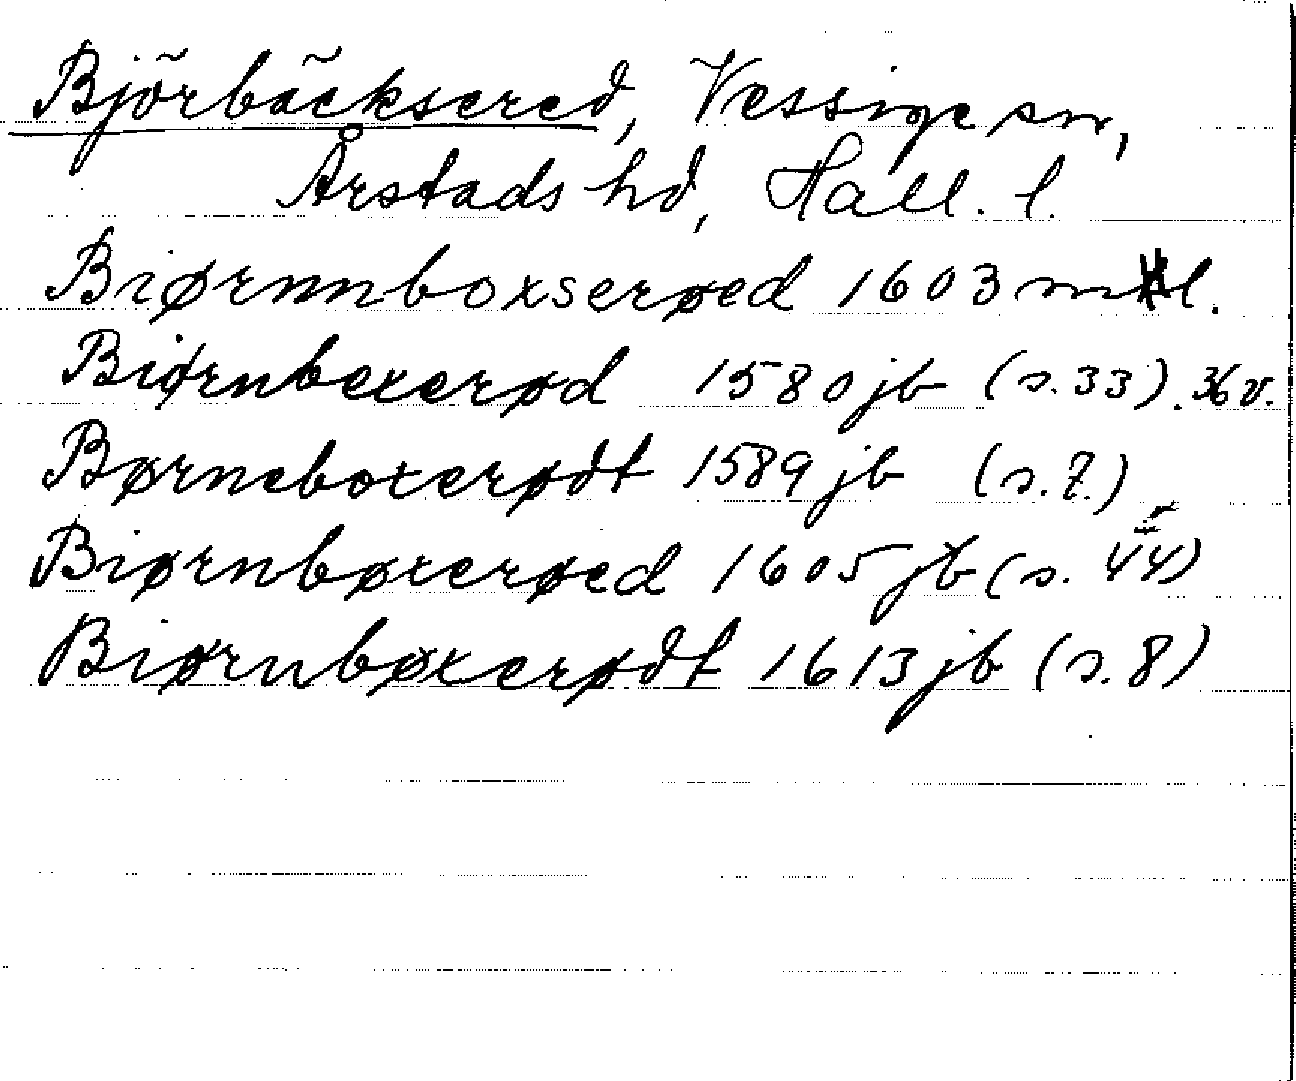 Björbäcksered, Vessige sn,
Årstads hd, Hall. l.
Biørnnboxserøed 1603 mtl.
Biørnbexerød 1580 jb (s. 33). 36 v.
Børneboxerødt 1589 jb (s. 7.)
Biørnbøxerøed 1605 jb (s. 44)
Biørnbøxerødt 1613 jb (s. 8)